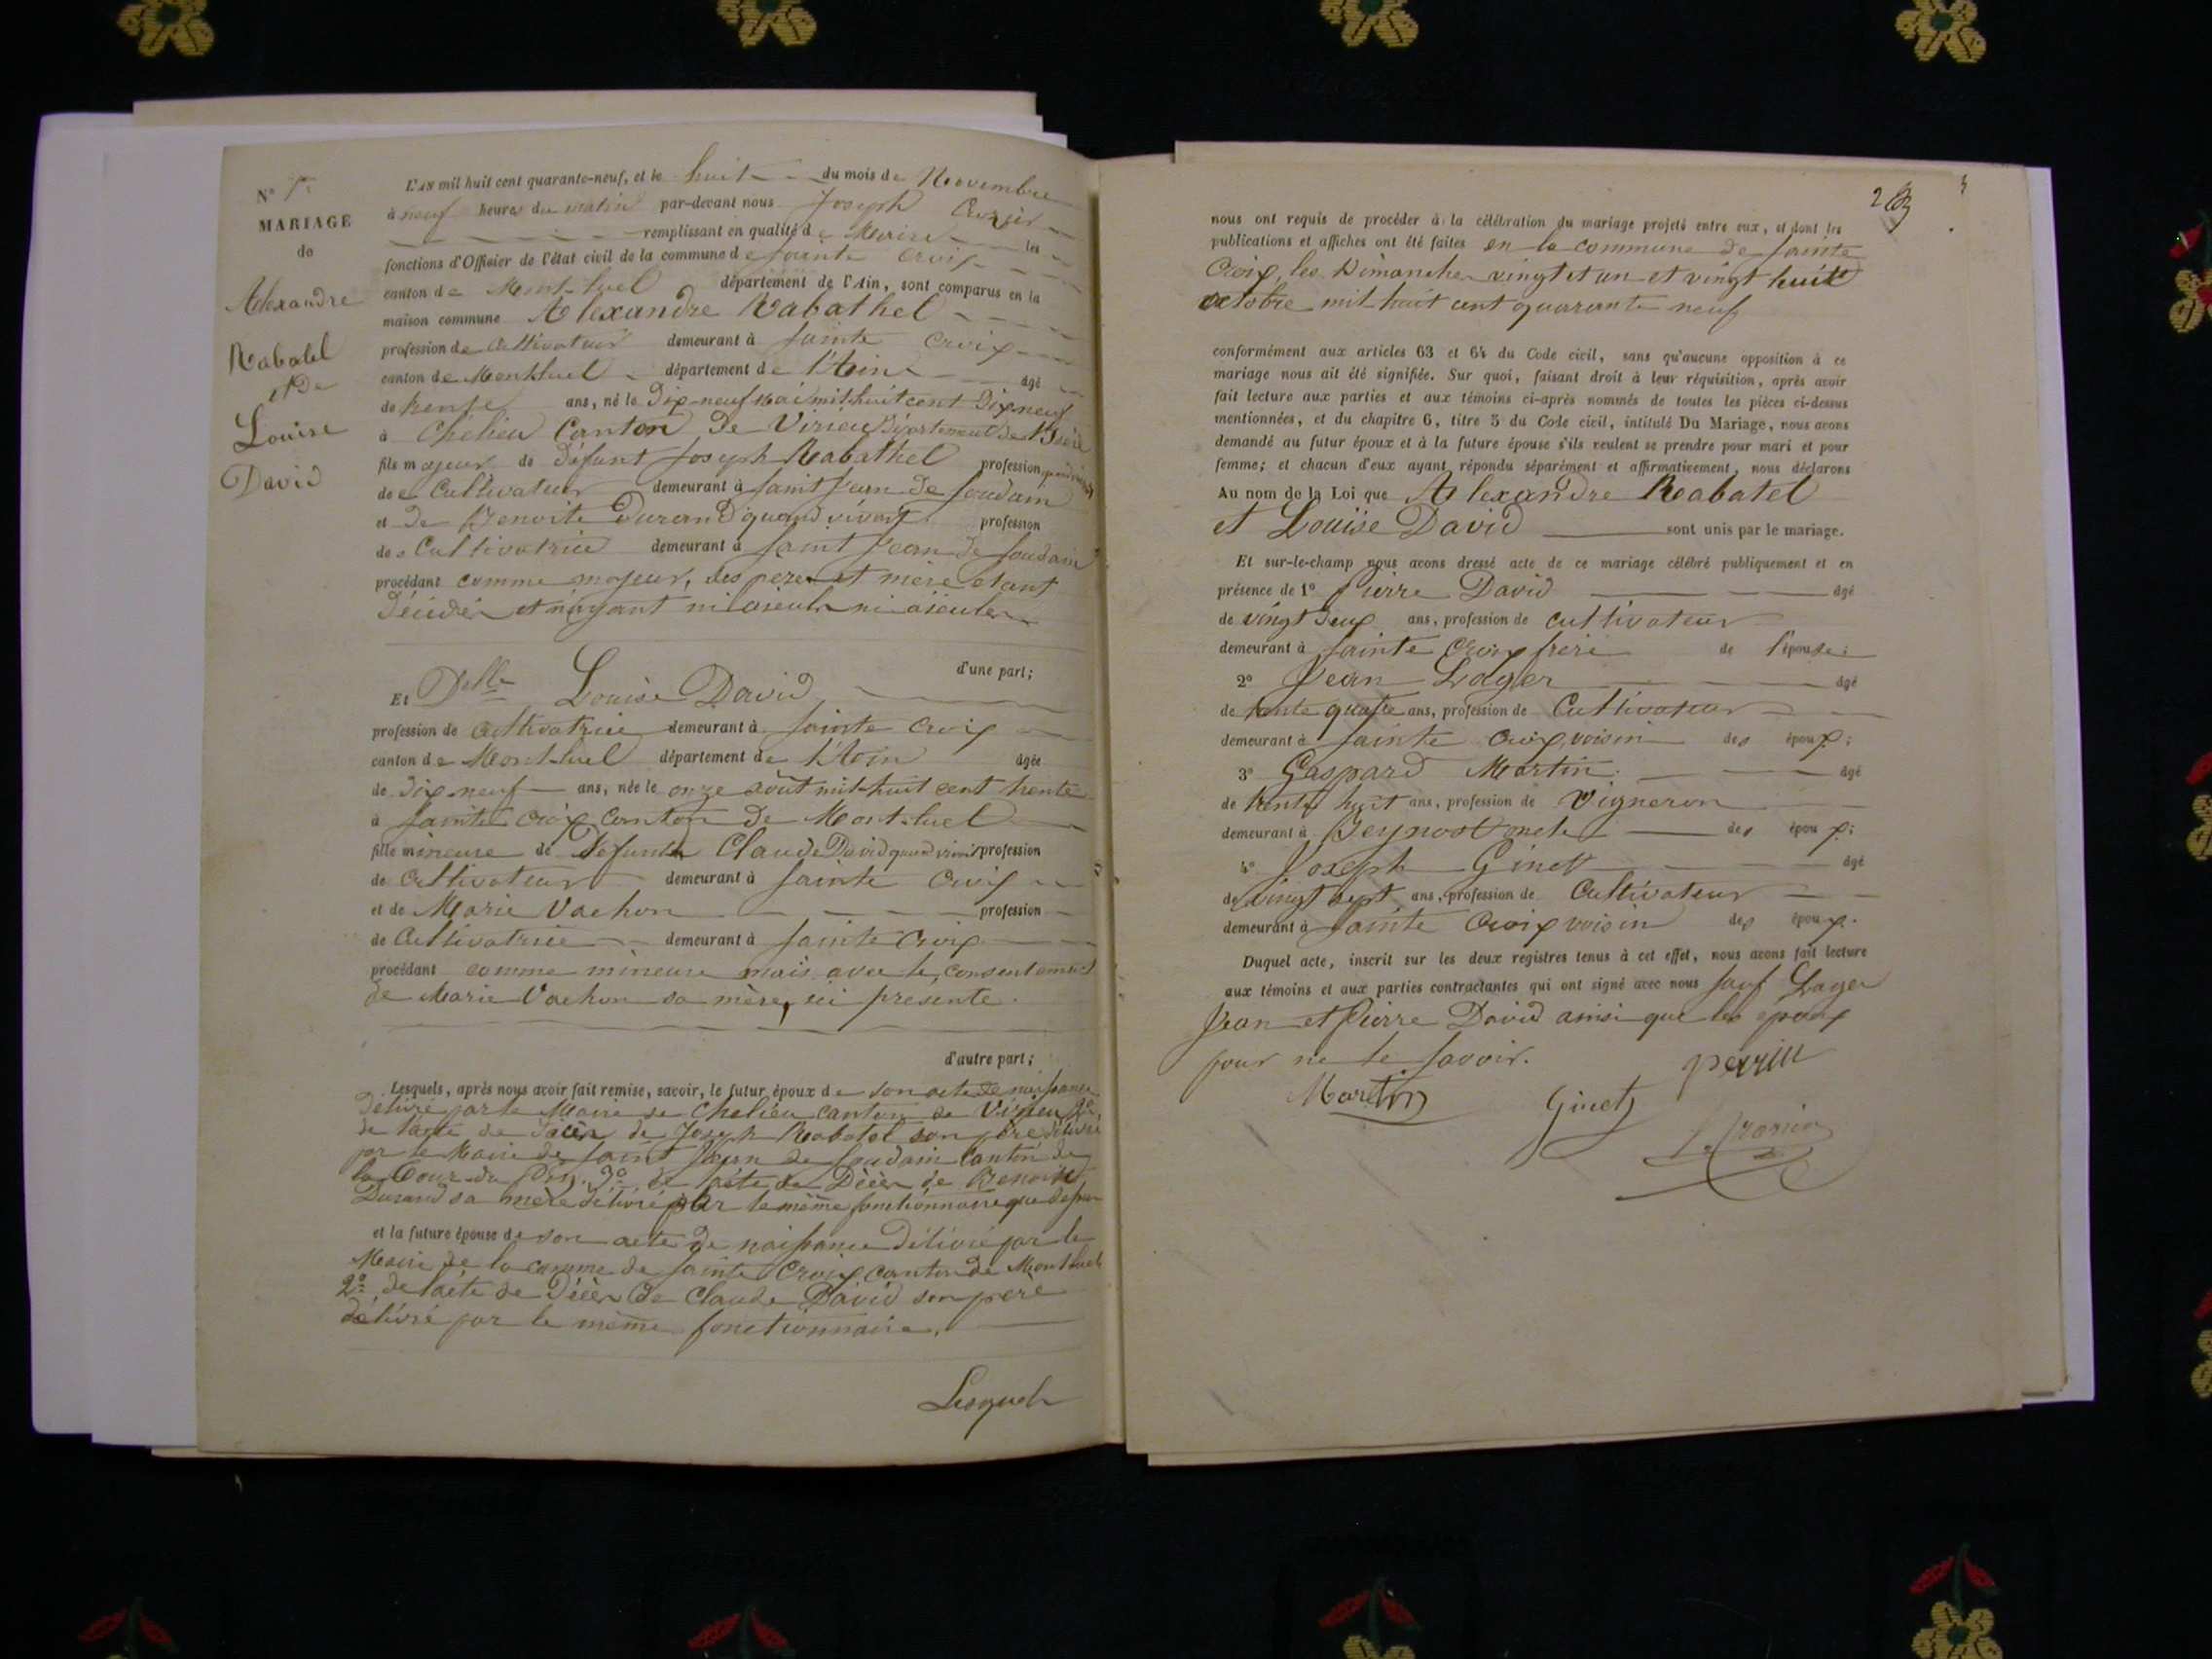 N° 7
MARIAGE
de
Alexandre
Rabatel
et De
Louise
David
L'AN mil huit cent quarante-neuf, et le huit du mois de Novembre
à neuf heures du matin par-devant nous Joseph
remplissant en qualité de Maire les
fonctions d'Officier de l'état civil de la commune de Sainte Croix
canton de Mont-luel département de l'Ain, sont comparus en la
maison commune Alexandre Rabathel
profession de cultivateur demeurant à Sainte Croix
canton de Montluel département de l'Ain âgé
de trente ans, né le Dix-neuf mai mil huit cent Dix neuf
à Chelieu Canton De Virieu Département de l'Isère
fils majeur de défunt Joseph Rabathel profession quand vivait
de Cultivateur demeurant à Saint Jean De Soudain
et De Benoite Durand quand vivait profession
de Cultivatrice demeurant à Saint Jean de Soudain
procédant comme majeur, ses père et mère etant
Décédés et n'ayant ni aieuls ni aieules
d'une part;
Et Delle Louise David
profession de Cultivatrice demeurant à Sainte Croix
canton de Mont-luel département de l'Ain âgée
de Dix-neuf ans, née le onze août mil huit cent trente
à Sainte Croix Canton de Mont-luel
fille mineure de Defunt Claude David quand vivait profession
de Cultivateur demeurant à Sainte Croix
et de Marie Vachon profession
de Cultivatrice demeurant à Sainte Croix
procédant comme mineure mais avec le consentement
de Marie Vachon sa mère, ici présente.
d'autre part;
Lesquels, après nous avoir fait remise, savoir, le futur époux de son acte de naissance
délivré par le Maire de Chelieu canton de Virieu 2°
de l'acte de Décès de Joseph Rabatel son père délivré
par le Maire de Saint Jean de Soudain Canton de
la Tour du Pin. 3° de l'acte de Décès de Benoite
Durand sa mère délivré par le même fonctionnaire que dessus
et la future épouse de son acte de naissance délivré par le
Maire de la comme de Sainte Croix canton de Montluel
2° de l'acte de Décès de Claude David son père
délivré par le même fonctionnaire.
Lesquels
nous ont requis de procéder à la célébration du mariage projeté entre eux, et dont les
publications et affiches ont été faites en la commune de Sainte
Croix, les Dimanches vingt et un et vingt huit
octobre mil huit cent quarante neuf
conformément aux articles 63 et 64 du Code civil, sans qu'aucune opposition à ce
mariage nous ait été signifiée. Sur quoi, faisant droit à leur réquisition, après avoir
fait lecture aux parties et aux témoins ci-après nommés de toutes les pièces ci-dessus
mentionnées, et du chapitre 6, titre 5 du Code civil, intitulé Du Mariage, nous avons
demandé au futur époux et à la future épouse s'ils veulent se prendre pour mari et pour
femme; et chacun d'eux ayant répondu séparément et affirmativement, nous déclarons
Au nom de la Loi que Alexandre Rabatel
et Louise David sont unis par le mariage.
Et sur-le-champ nous avons dressé acte de ce mariage célébré publiquement et en
présence de 1° Pierre David âgé
de vingt deux ans, profession de cultivateur
demeurant à Sainte Croix frère de l'épouse;
2° Jean Lager âgé
de trente quatre ans, profession de Cultivateur
demeurant à Sainte Croix, voisin des époux;
3° Gaspard Martin âgé
de trente huit ans, profession de Vigneron
demeurant à Beynost oncle des époux;
4° Joseph Ginet âgé
de vingt sept ans, profession de Cultivateur
demeurant à Sainte Croix voisin des époux.
Duquel acte, inscrit sur les deux registres tenus à cet effet, nous avons fait lecture
aux témoins et aux parties contractantes qui ont signé avec nous sauf Lager
Jean et Pierre David ainsi que les époux
pour ne le savoir.
Martin Ginet perrin